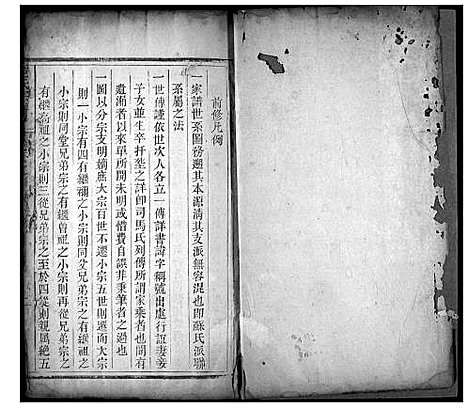 前修凡例
一家譜世系圖務遡其本源清其支派無容混也即蘇氏派聯
系屬之法
一世傳謹依世次人各立一傳詳書諱字稱號出處行誼妻妾
子女並生卒扦塟之詳即司馬氏列傳所謂家乘者也間有
遺漏者以來早所聞未明或惜費自誤非秉筆者之過也
一圖以分宗支明嫡庶大宗百世不遷小宗五世則遷而大宗
則一小宗有四有繼禰之小宗則同父兄弟宗之有繼祖之
小宗則同堂兄弟宗之有繼曾祖之小宗則再從兄弟宗之
有繼高祖之小宗則三從兄弟宗之至於四從則親屬絕五